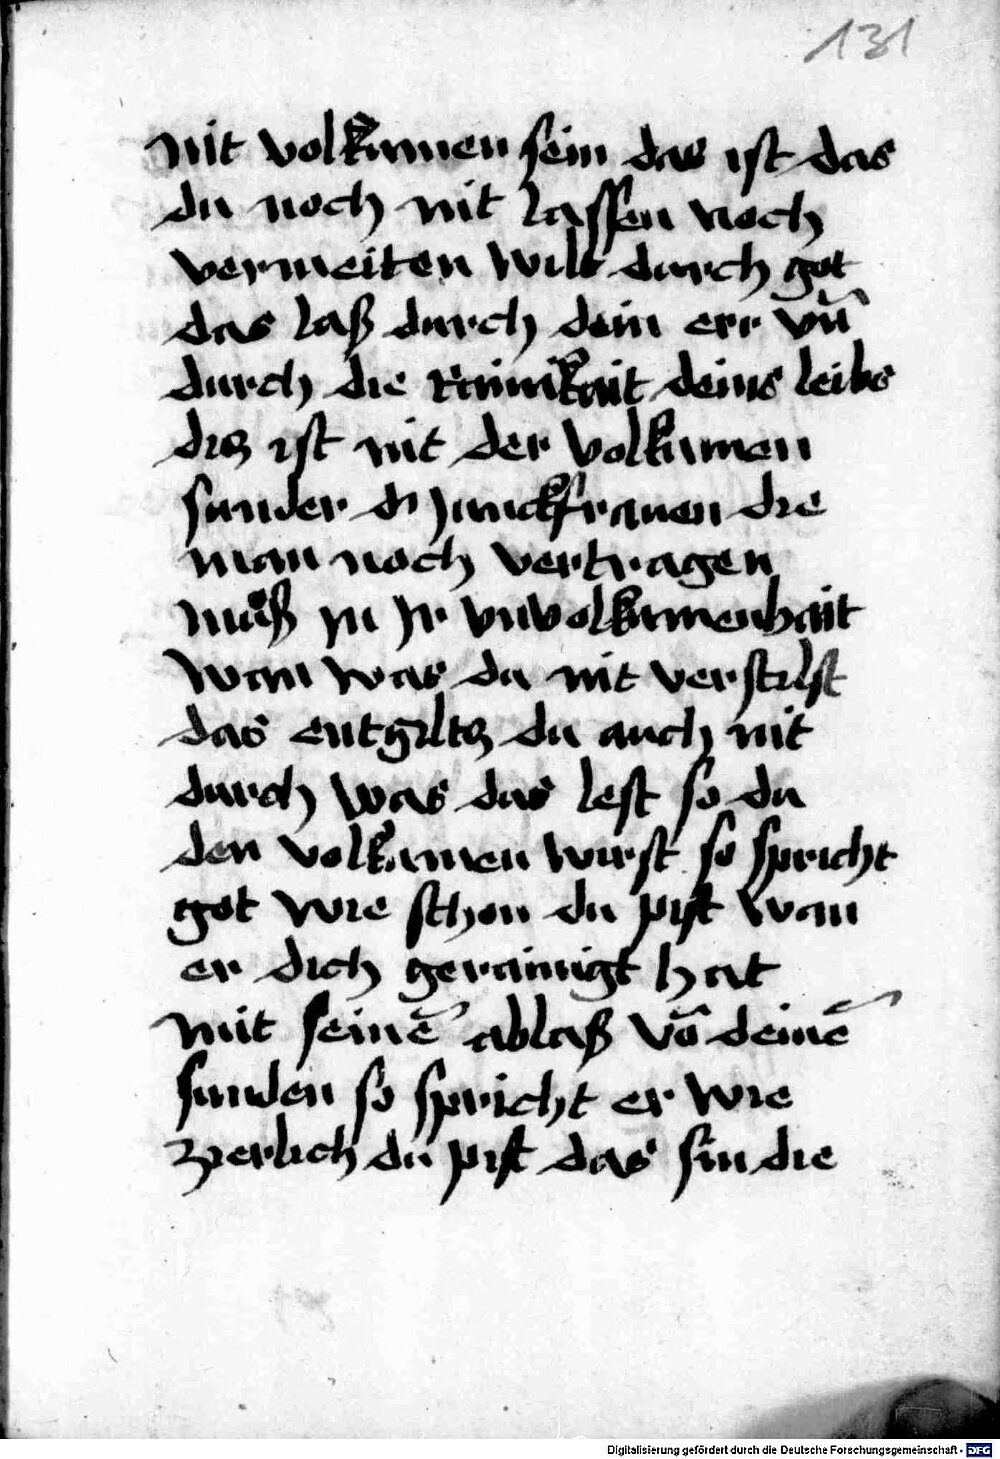 131
nit volkumen sein das ist das
du noch nit lassen noch
vermeiten wilt durch got
das laß durch dein err vñ
durch die rainikait deins leibs
diz ist nit der volkumen
sunder d' junckfrauen die
man noch vertragen
muß jn jr vnvolkumenhait
wan was du nit verstilst
das entgiltz du auch nit
durch was das lest so du
den volkumen wirst so spricht
got wie schon du pist wan
er dich gerainigt hat
mit seinē ablaß vō deinē
sunden so spricht er wie
zierlich du pist das sin die
Digitalisierung gefördert durch die Deutsche Forschungsgemeinschaft - DFG